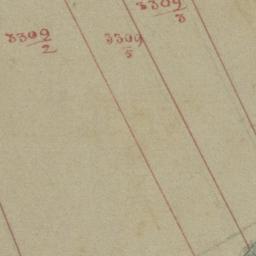 3309/3
3309/2
3309/5